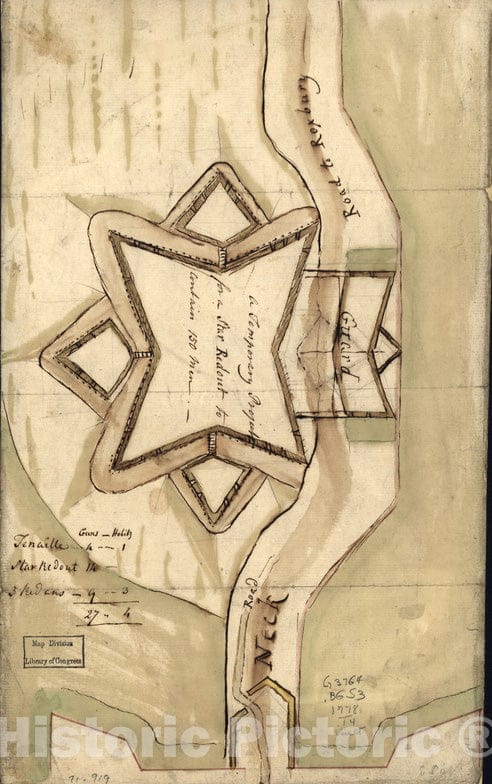 Road to Roxbury
a Temporary Project
for a Star Redout to
contain 150 men —
Guard
Guns — Hobitz
Tenaille -- 4 -- 1
Star Redout 14 --
3 Redans -- 9 -- 3
27 -- 4
Road
Neck
Map Division
Library of Congress
G3764
.B6S3
1778
.T4
71-919
Historic Pictoric ®